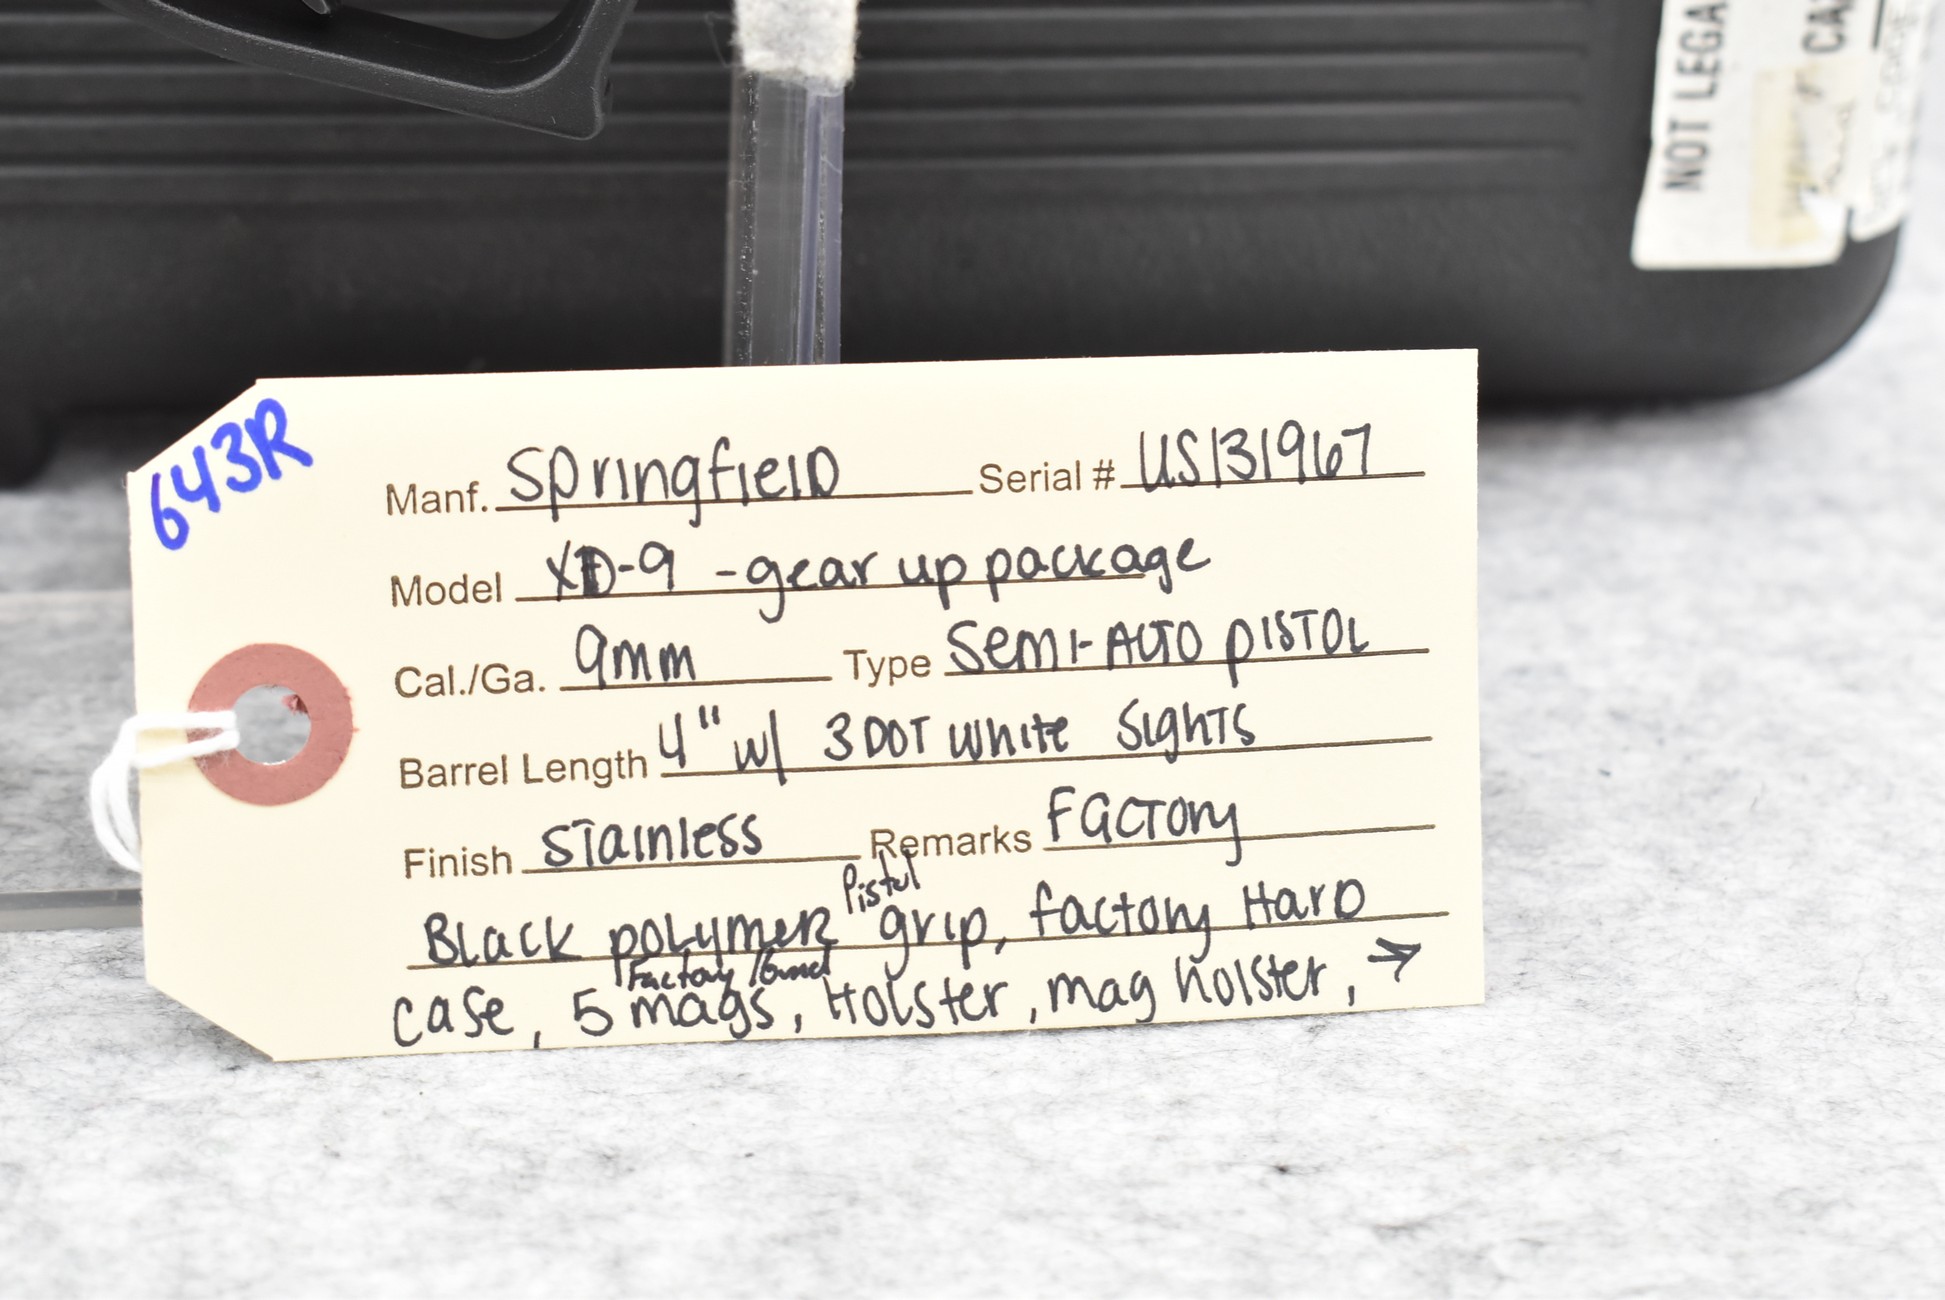 NOT LEGA
CA
643R
Manf. Springfield Serial # US131967
Model XD-9 - gear up package
Cal./Ga. 9mm Type Semi-Auto Pistol
Barrel Length 4" w/ 3 DOT white Sights
Finish Stainless Remarks Factory
Black polymer Pistol grip, factory Hard
case, 5 Factory mags, Holster, mag holster, →